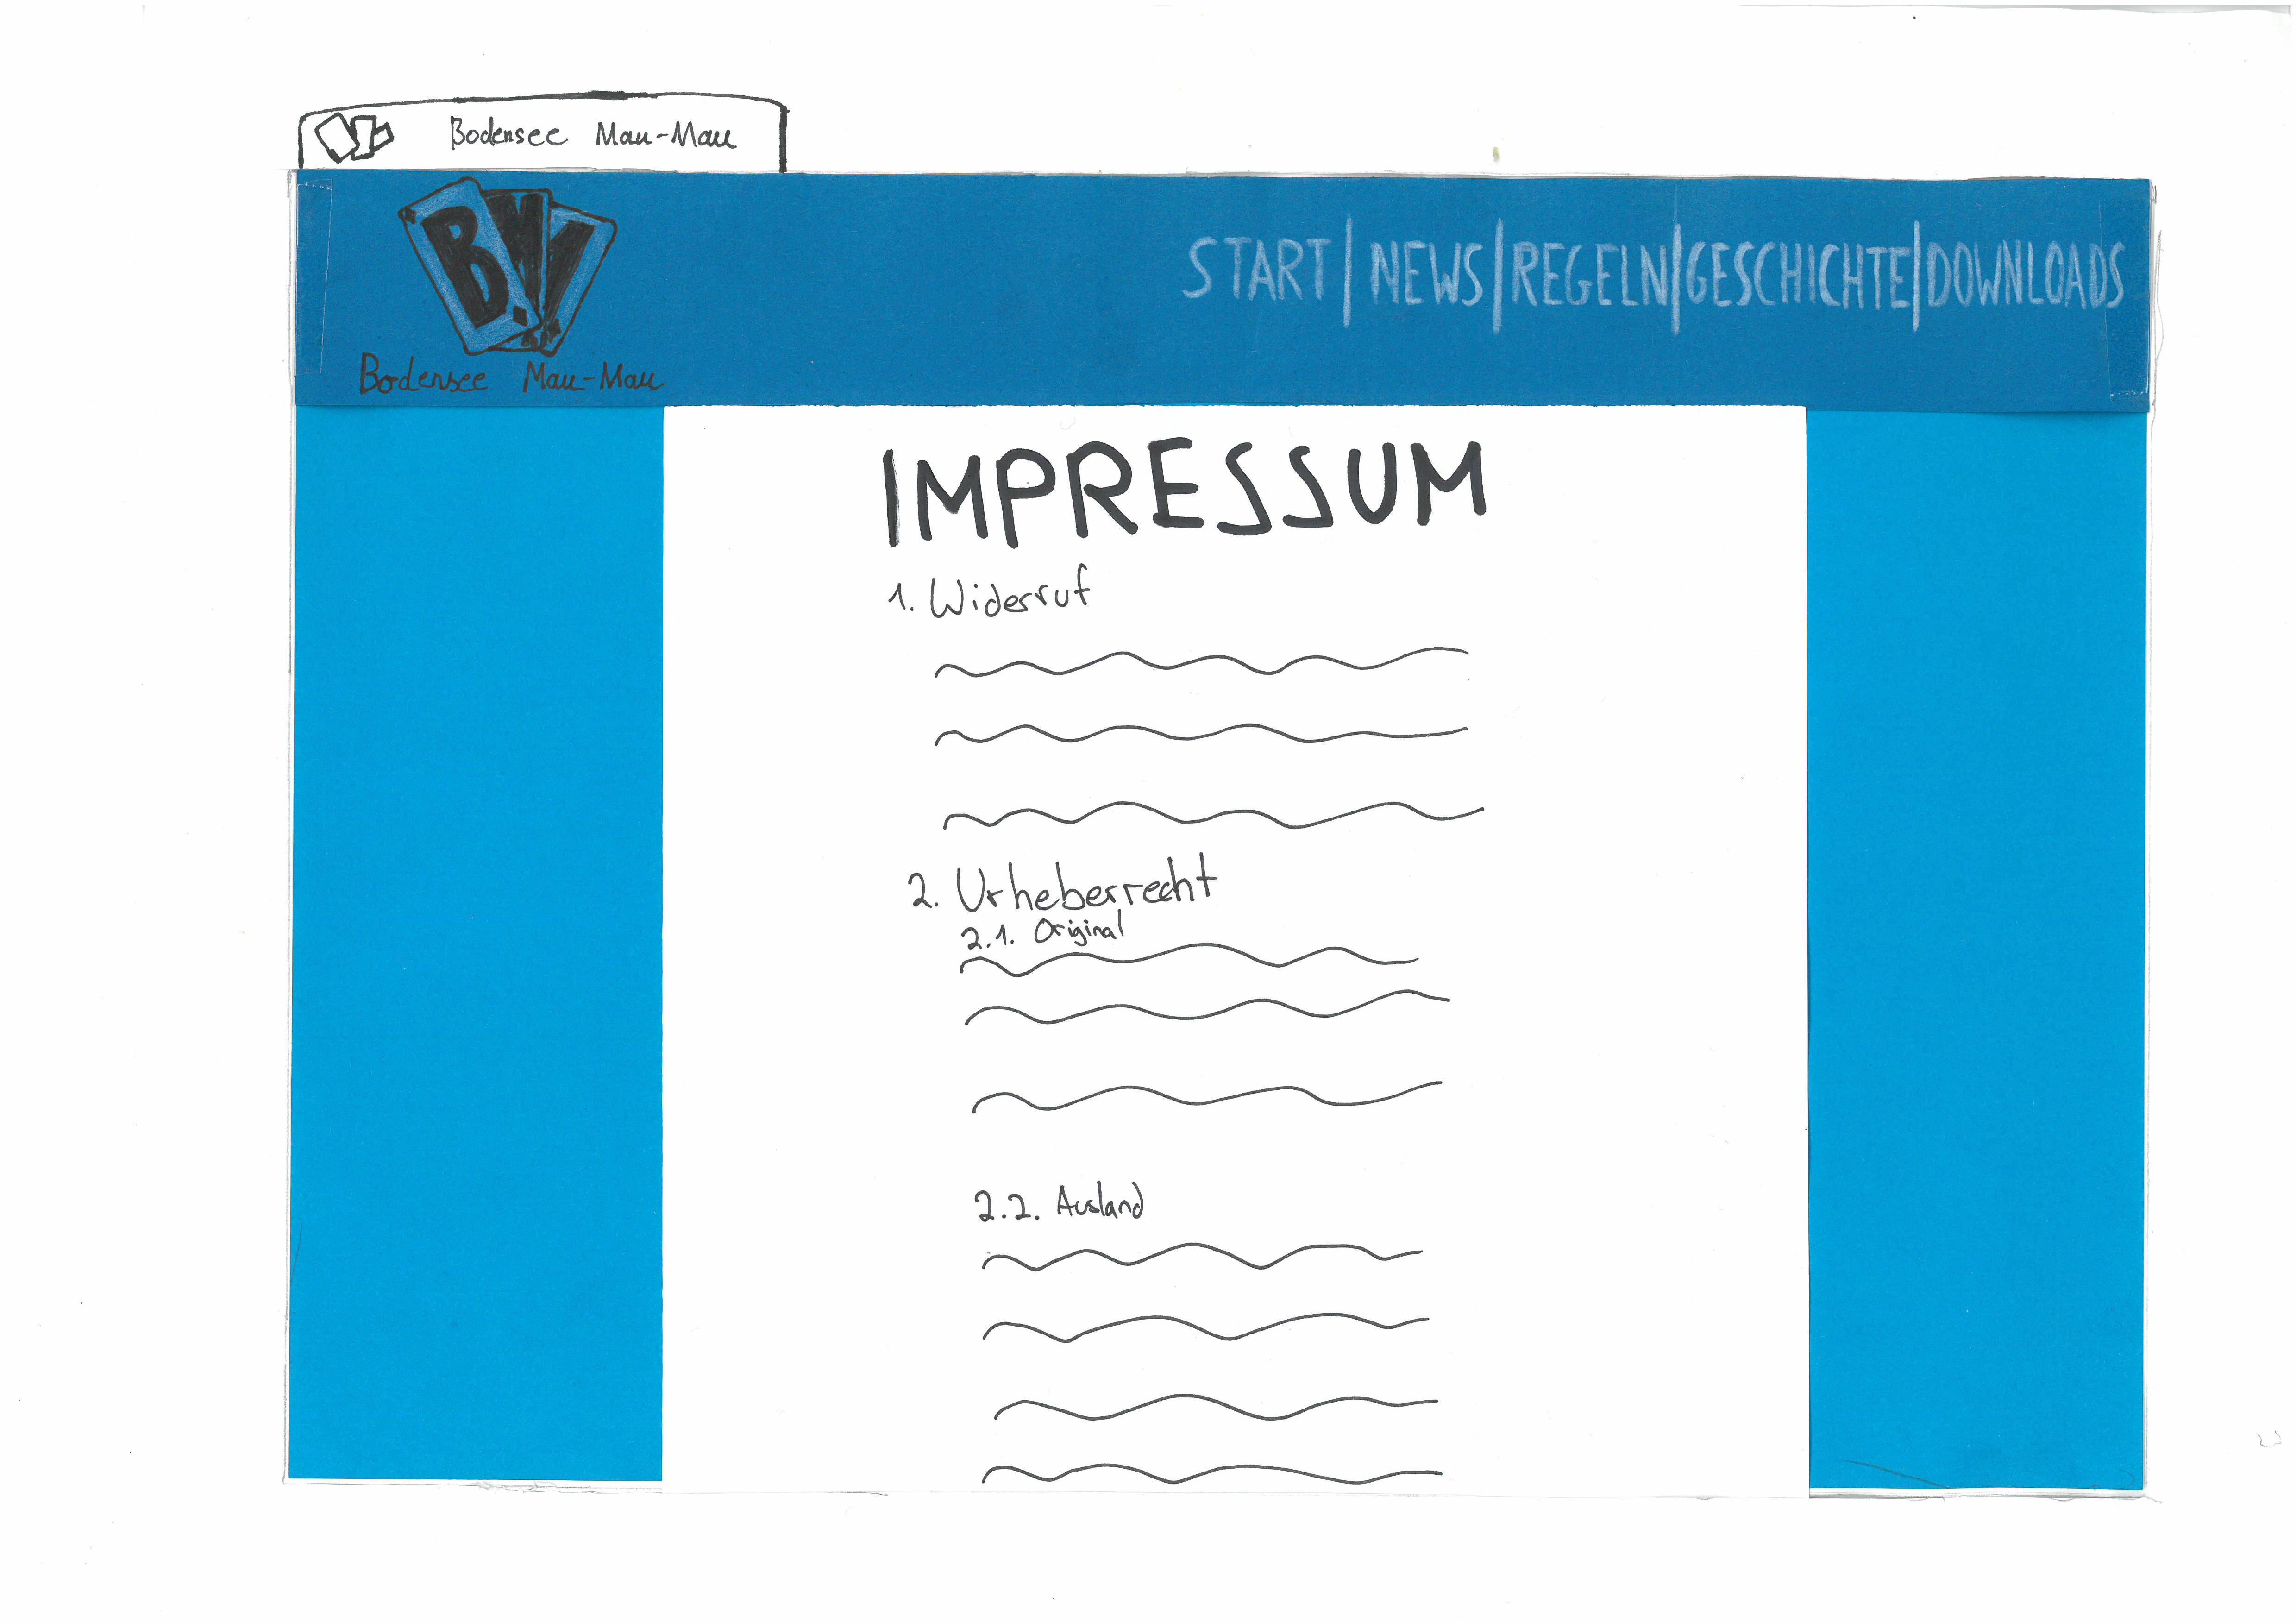 Bodensee Mau-Mau
B.
Bodensee Mau-Mau
START | NEWS | REGELN | GESCHICHTE | DOWNLOADS
IMPRESSUM
1. Widerruf
2. Urheberrecht
2.1. Original
2.2. Ausland